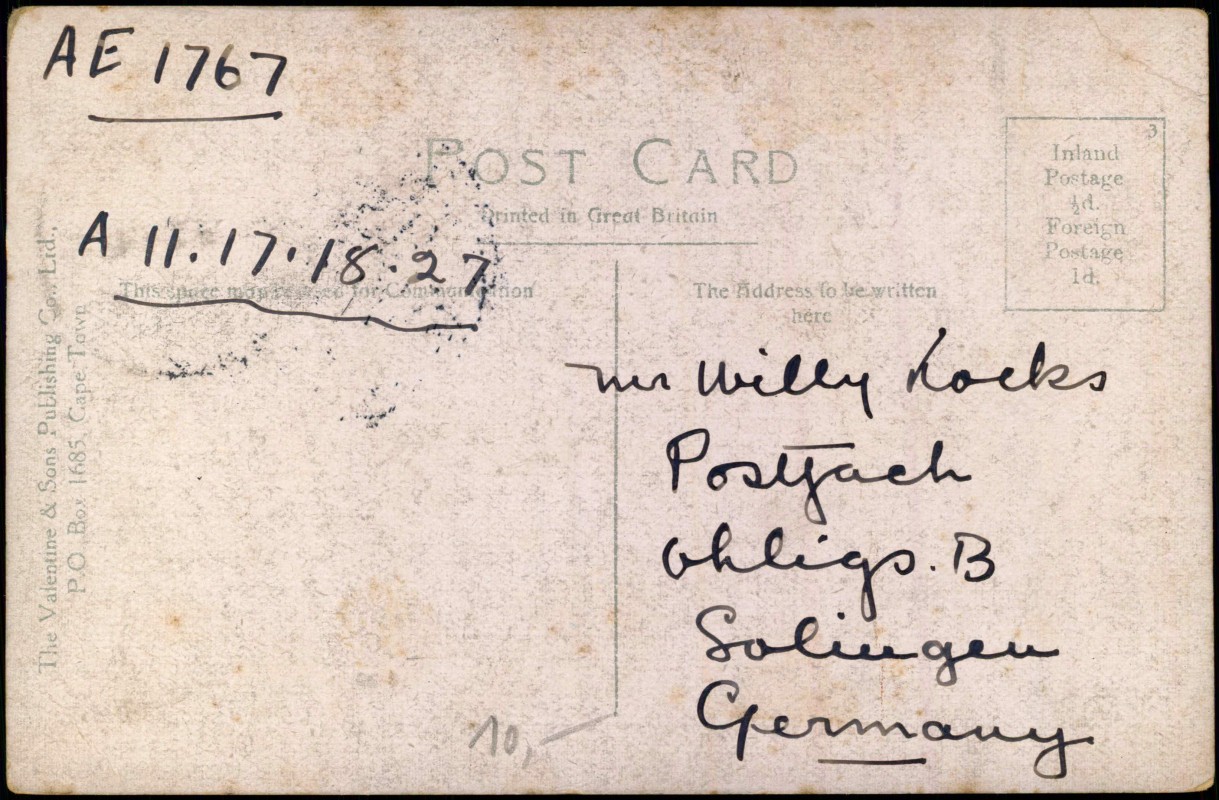 AE 1767
POST CARD
Printed in Great Britain
3
Inland
Postage
½d.
Foreign
Postage
1d.
A 11.17.18.27
This space may be used for Communication
The Address to be written
here
The Valentine & Sons Publishing Co., Ltd.,
P.O. Box 1685, Cape Town
Mr Willy Kocks
Postfach
Ohligs. B
Solingen
Germany
10,-